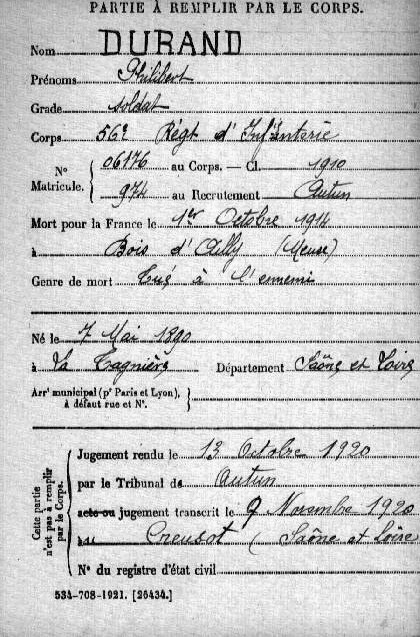 PARTIE À REMPLIR PAR LE CORPS.
Nom DURAND
Prénoms Philibert
Grade soldat
Corps 56e Régt d'Infanterie
N° Matricule. { 06176 au Corps. — Cl. 1910
974 au Recrutement Autun
Mort pour la France le 1er Octobre 1914
à Bois d'Ailly (Meuse)
Genre de mort tué à l'ennemi
Né le 7 Mai 1890
à La Tagnière Département Saône et Loire
Arrt municipal (pr Paris et Lyon), à défaut rue et N°. }
Cette partie n'est pas à remplir par le Corps. {
Jugement rendu le 13 Octobre 1920
par le Tribunal de Autun
acte ou jugement transcrit le 9 Novembre 1920
au Creusot (Saône et Loire
N° du registre d'état civil
534-708-1921. [26434.]